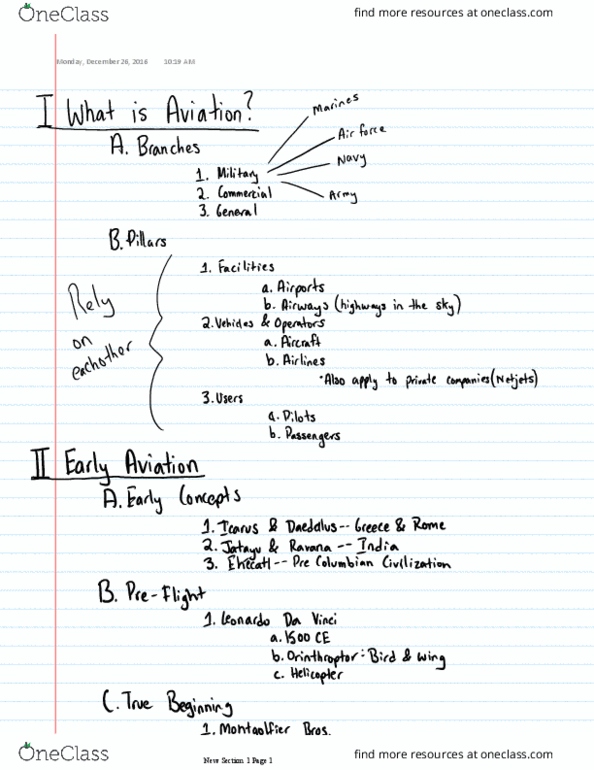 OneClass
find more resources at oneclass.com
Monday, December 26, 2016 10:19 AM
I What is Aviation?
Marines
Air force
Navy
Army
A. Branches
1. Military
2. Commercial
3. General
B. Pillars
Rely
on
eachother
1. Facilities
a. Airports
b. Airways (highways in the sky)
2. Vehicles & Operators
a. Aircraft
b. Airlines
·Also apply to private companies (Netjets)
3. Users
a. Pilots
b. Passengers
II Early Aviation
A. Early Concepts
1. Icarus & Daedalus -- Greece & Rome
2. Jatayu & Ravana -- India
3. Ehecatl -- Pre Columbian Civilization
B. Pre-Flight
1. Leonardo Da Vinci
a. 1500 CE
b. Orinthroptor: Bird & Wing
c. Helicopter
C. True Beginning
1. Montgolfier Bros.
OneClass
New Section 1 Page 1
find more resources at oneclass.com